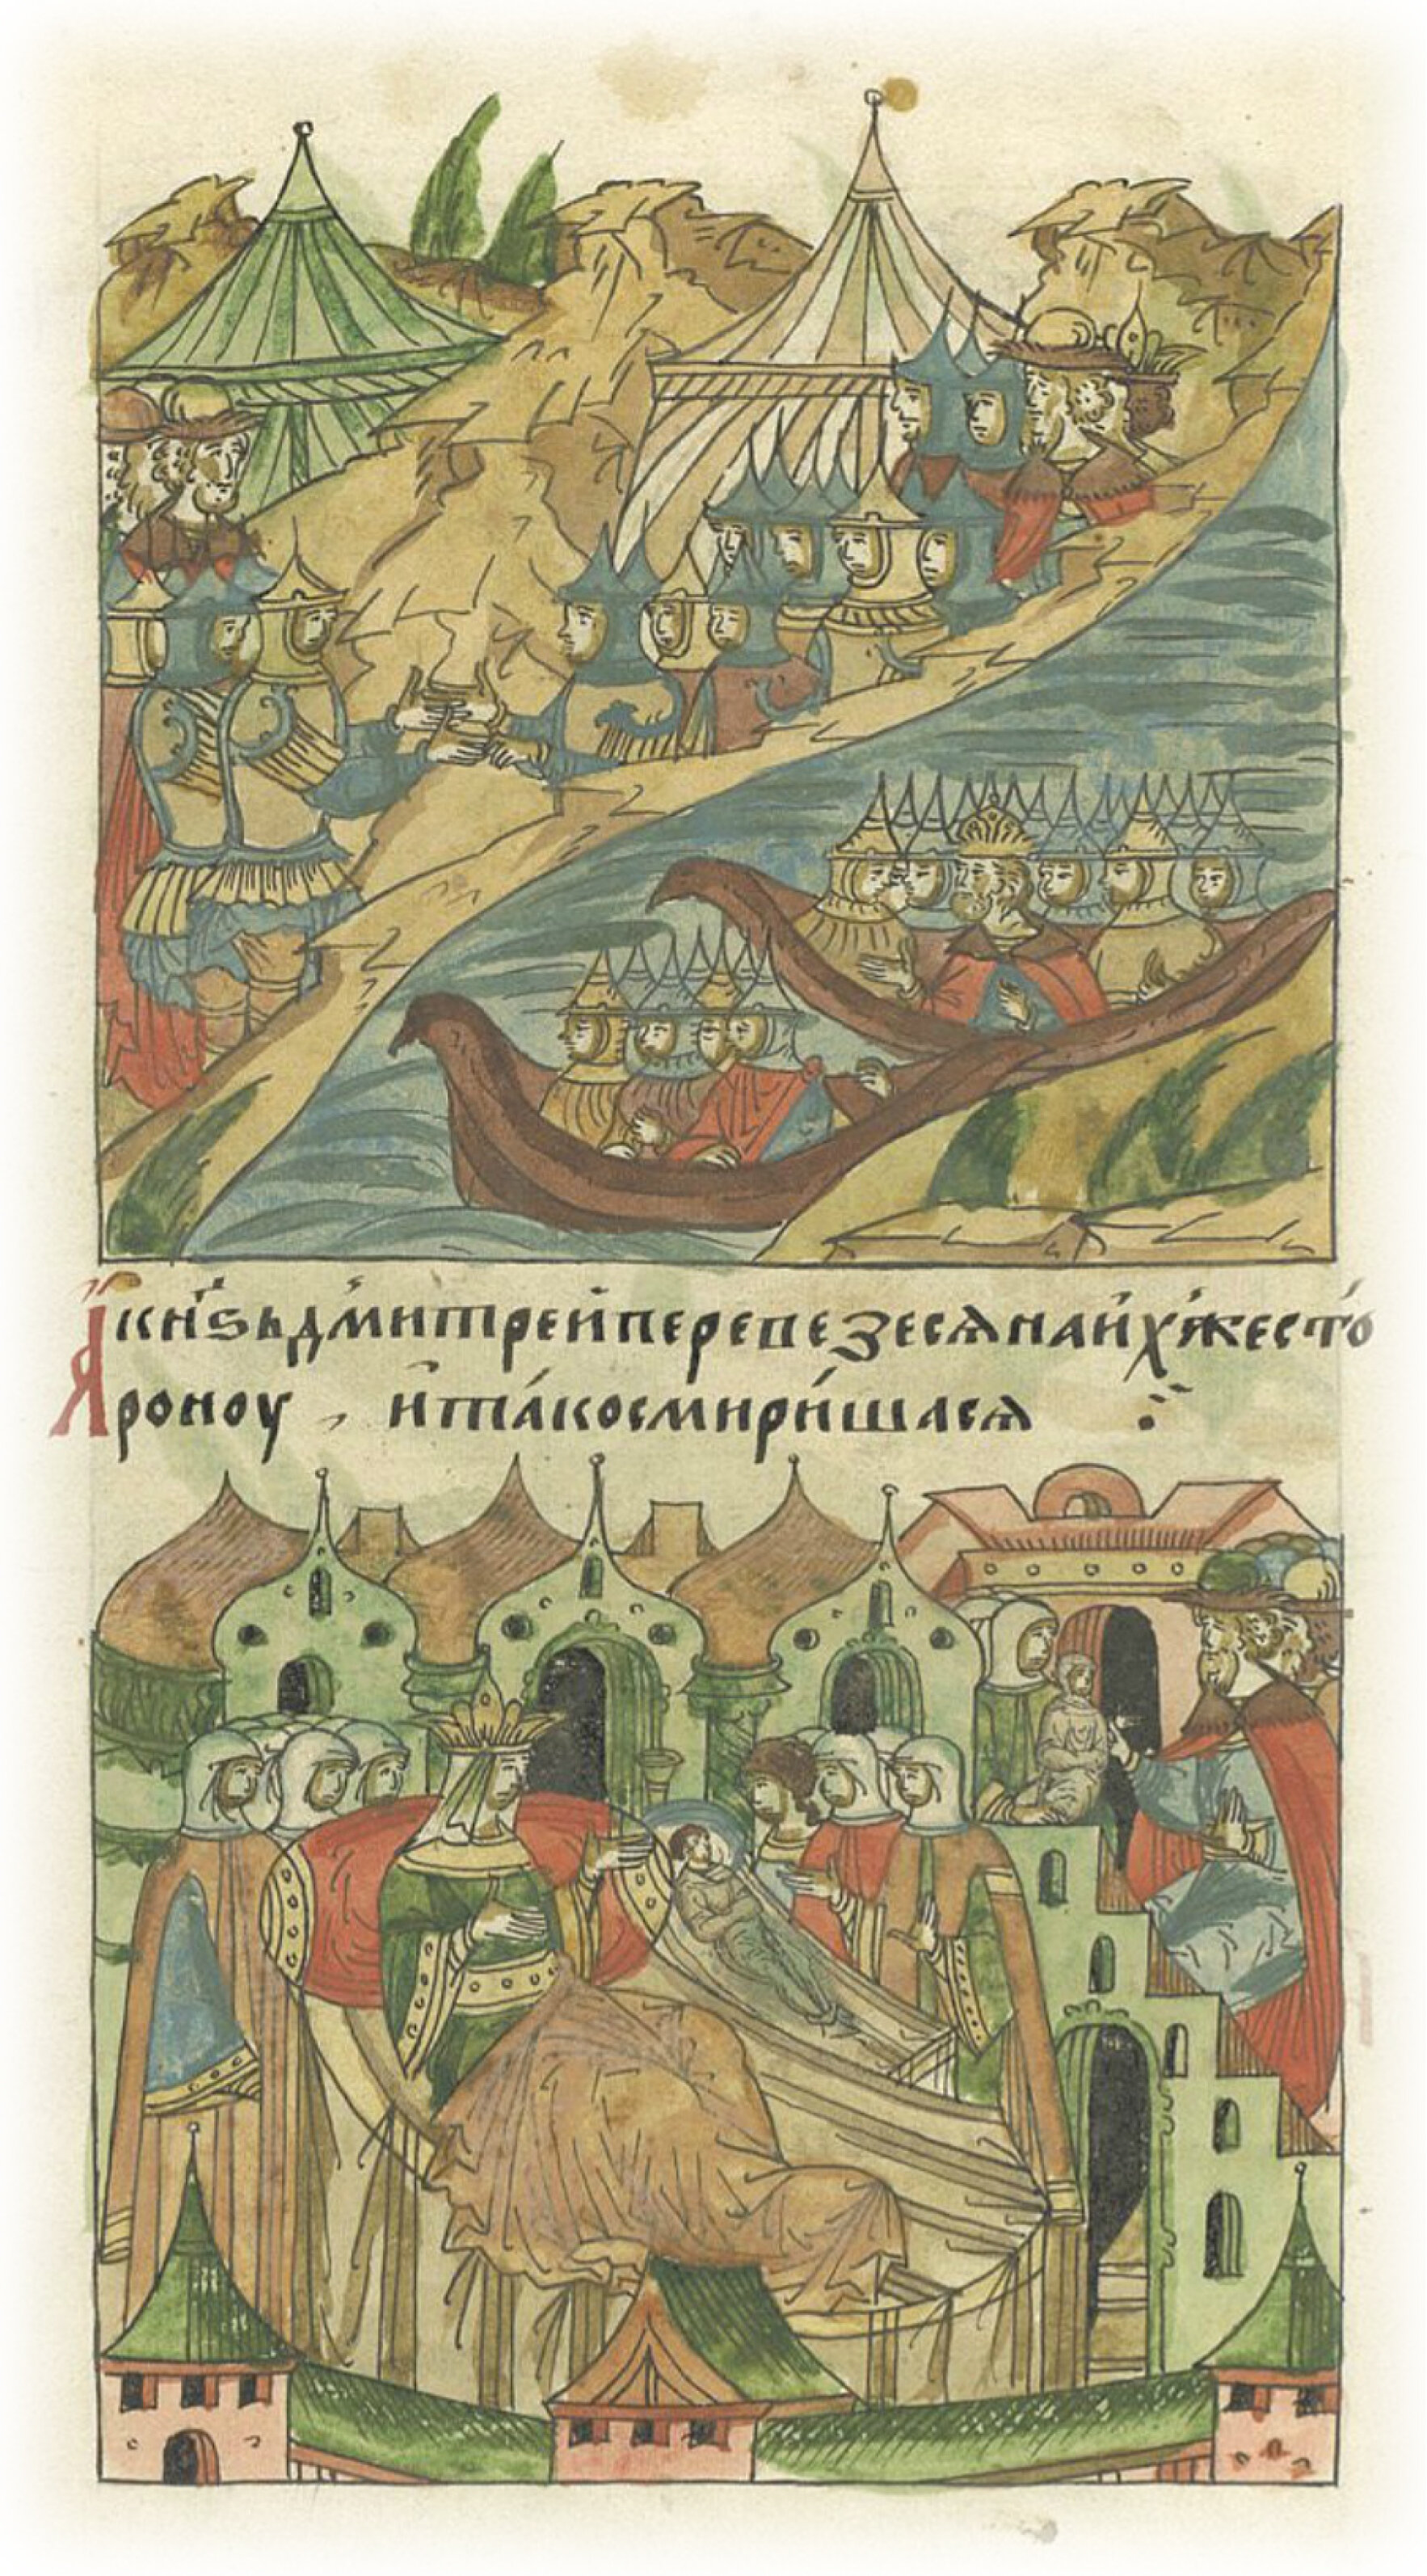 Акн҃ѕь дми́трей перевезесѧ на и́хже сто́
роноу , и та́ко смири́шасѧ ჻